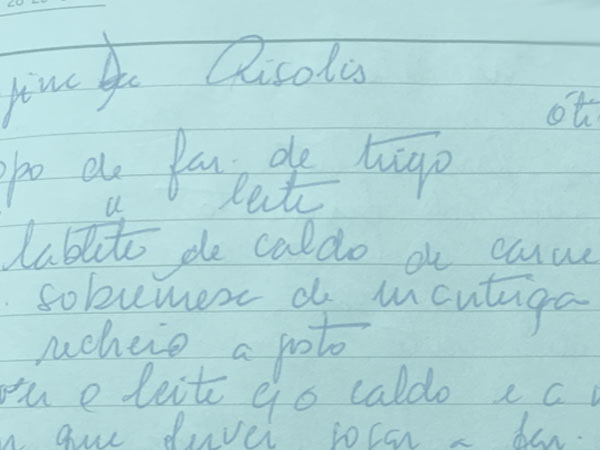 Risolis
óti
opo de far. de trigo
" leite
tablete de caldo de carne
sobremesa de manteiga
recheio a gosto
o leite c/ o caldo e a
que ferver socar a far.